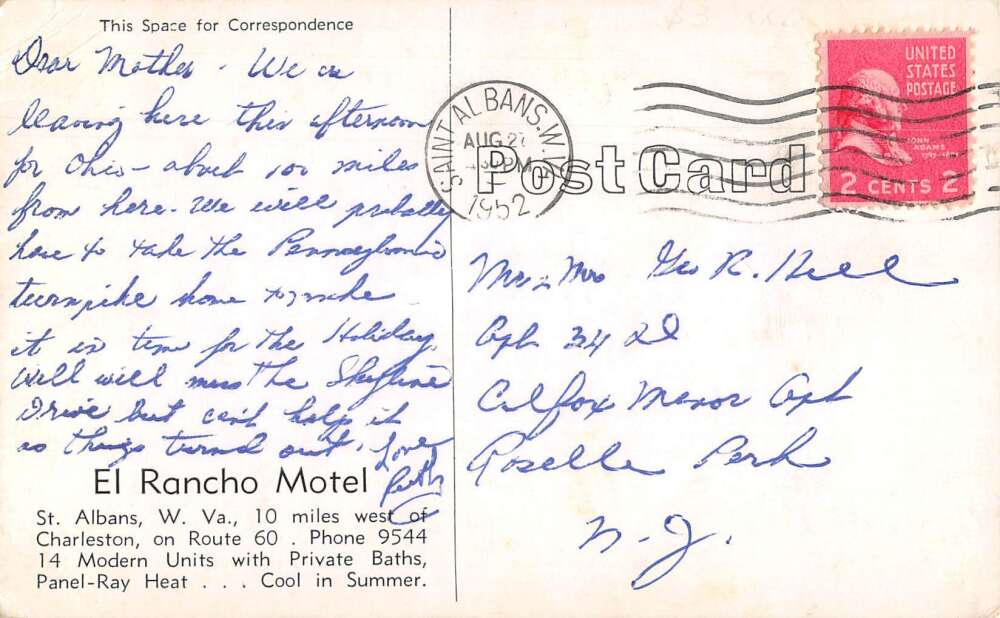 This Space for Correspondence
Dear Mother - We are
leaving here this afternoon
for Ohio - about 100 miles
from here. We will probably
have to take the Pennsylvania
turnpike home to make
it in time for the Holiday.
Well will miss the Skyline
Drive but can't help it
as things turned out. Love
Ruth
El Rancho Motel
St. Albans, W. Va., 10 miles west of
Charleston, on Route 60 . Phone 9544
14 Modern Units with Private Baths,
Panel-Ray Heat . . . Cool in Summer.
SAINT ALBANS. W.VA.
AUG 27
PM
1952
Post Card
UNITED
STATES
POSTAGE
JOHN
ADAMS
2 CENTS 2
Mr & Mrs Geo R. Hill
Apt
Colfax Manor Apt
Roselle Park
N. J.